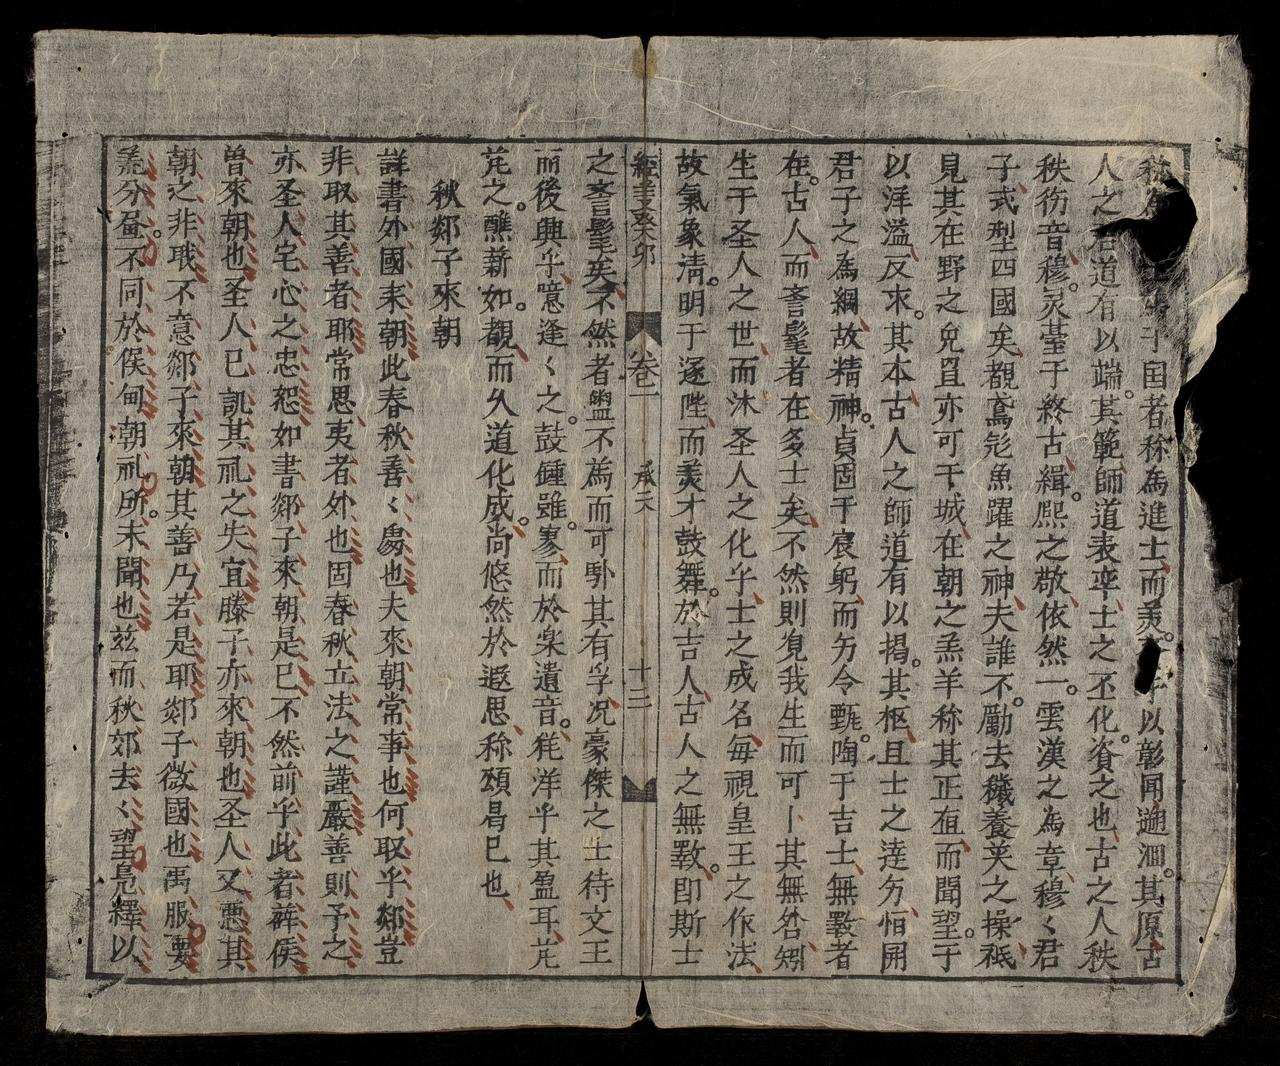 于国者称為進士而羙以彰闻遡洄其原古
人之道有以端其範師道表率士之丕化資之也古之人秩
秩㐲音穆灵䑓于終古緝熙之敬依然一雲漢之為章穆〻君
子式型四國矣覩鳶飛魚躍之神夫誰不勵去穢養芙之操祗
見其在野之兔罝亦可干城在朝之羔羊称其正直而聞望于
以洋溢反求其本古人之師道有以揭其枢且士之逹㫄怕開
君子之為綱故精神貞固于宸躬而㫄令甄陶于吉士無斁者
在古人而誉髦者在多士矣不然則覓我生而可卜其無咎矧
生于圣人之世而沐圣人之化乎士之成名毎視皇王之作法
故氣象清明于逐陛而羙才鼓舞於吉人古人之無斁即斯士
經義癸卯 卷一 承天 十三
之誉髦矣不然者蛊不為而可卦其有孚况豪傑之士待文王
而後興乎噫逢〻之鼓鍾雖寥而於楽遺音徉洋乎其盈耳芃
芃之醮薪如覩而久道化成尚悠然於遐思称頌昌已也
秋郯子來朝
詳書外國来朝此春秋善〻勇也夫來朝常事也何取乎郯豈
非取其善者耶常思夷者外也固春秋立法之謹嚴善則予之
亦圣人宅心之忠恕如書郯子來朝是已不然前乎此者葬侯
曽來朝也圣人已訊其礼之失宜滕子亦來朝也圣人又悪其
朝之非哦不意郯子來朝其善乃若是耶郯子微國也禹服要
羗分壘不同於侯甸朝礼所未聞也兹而秋郊去〻望凫繹以